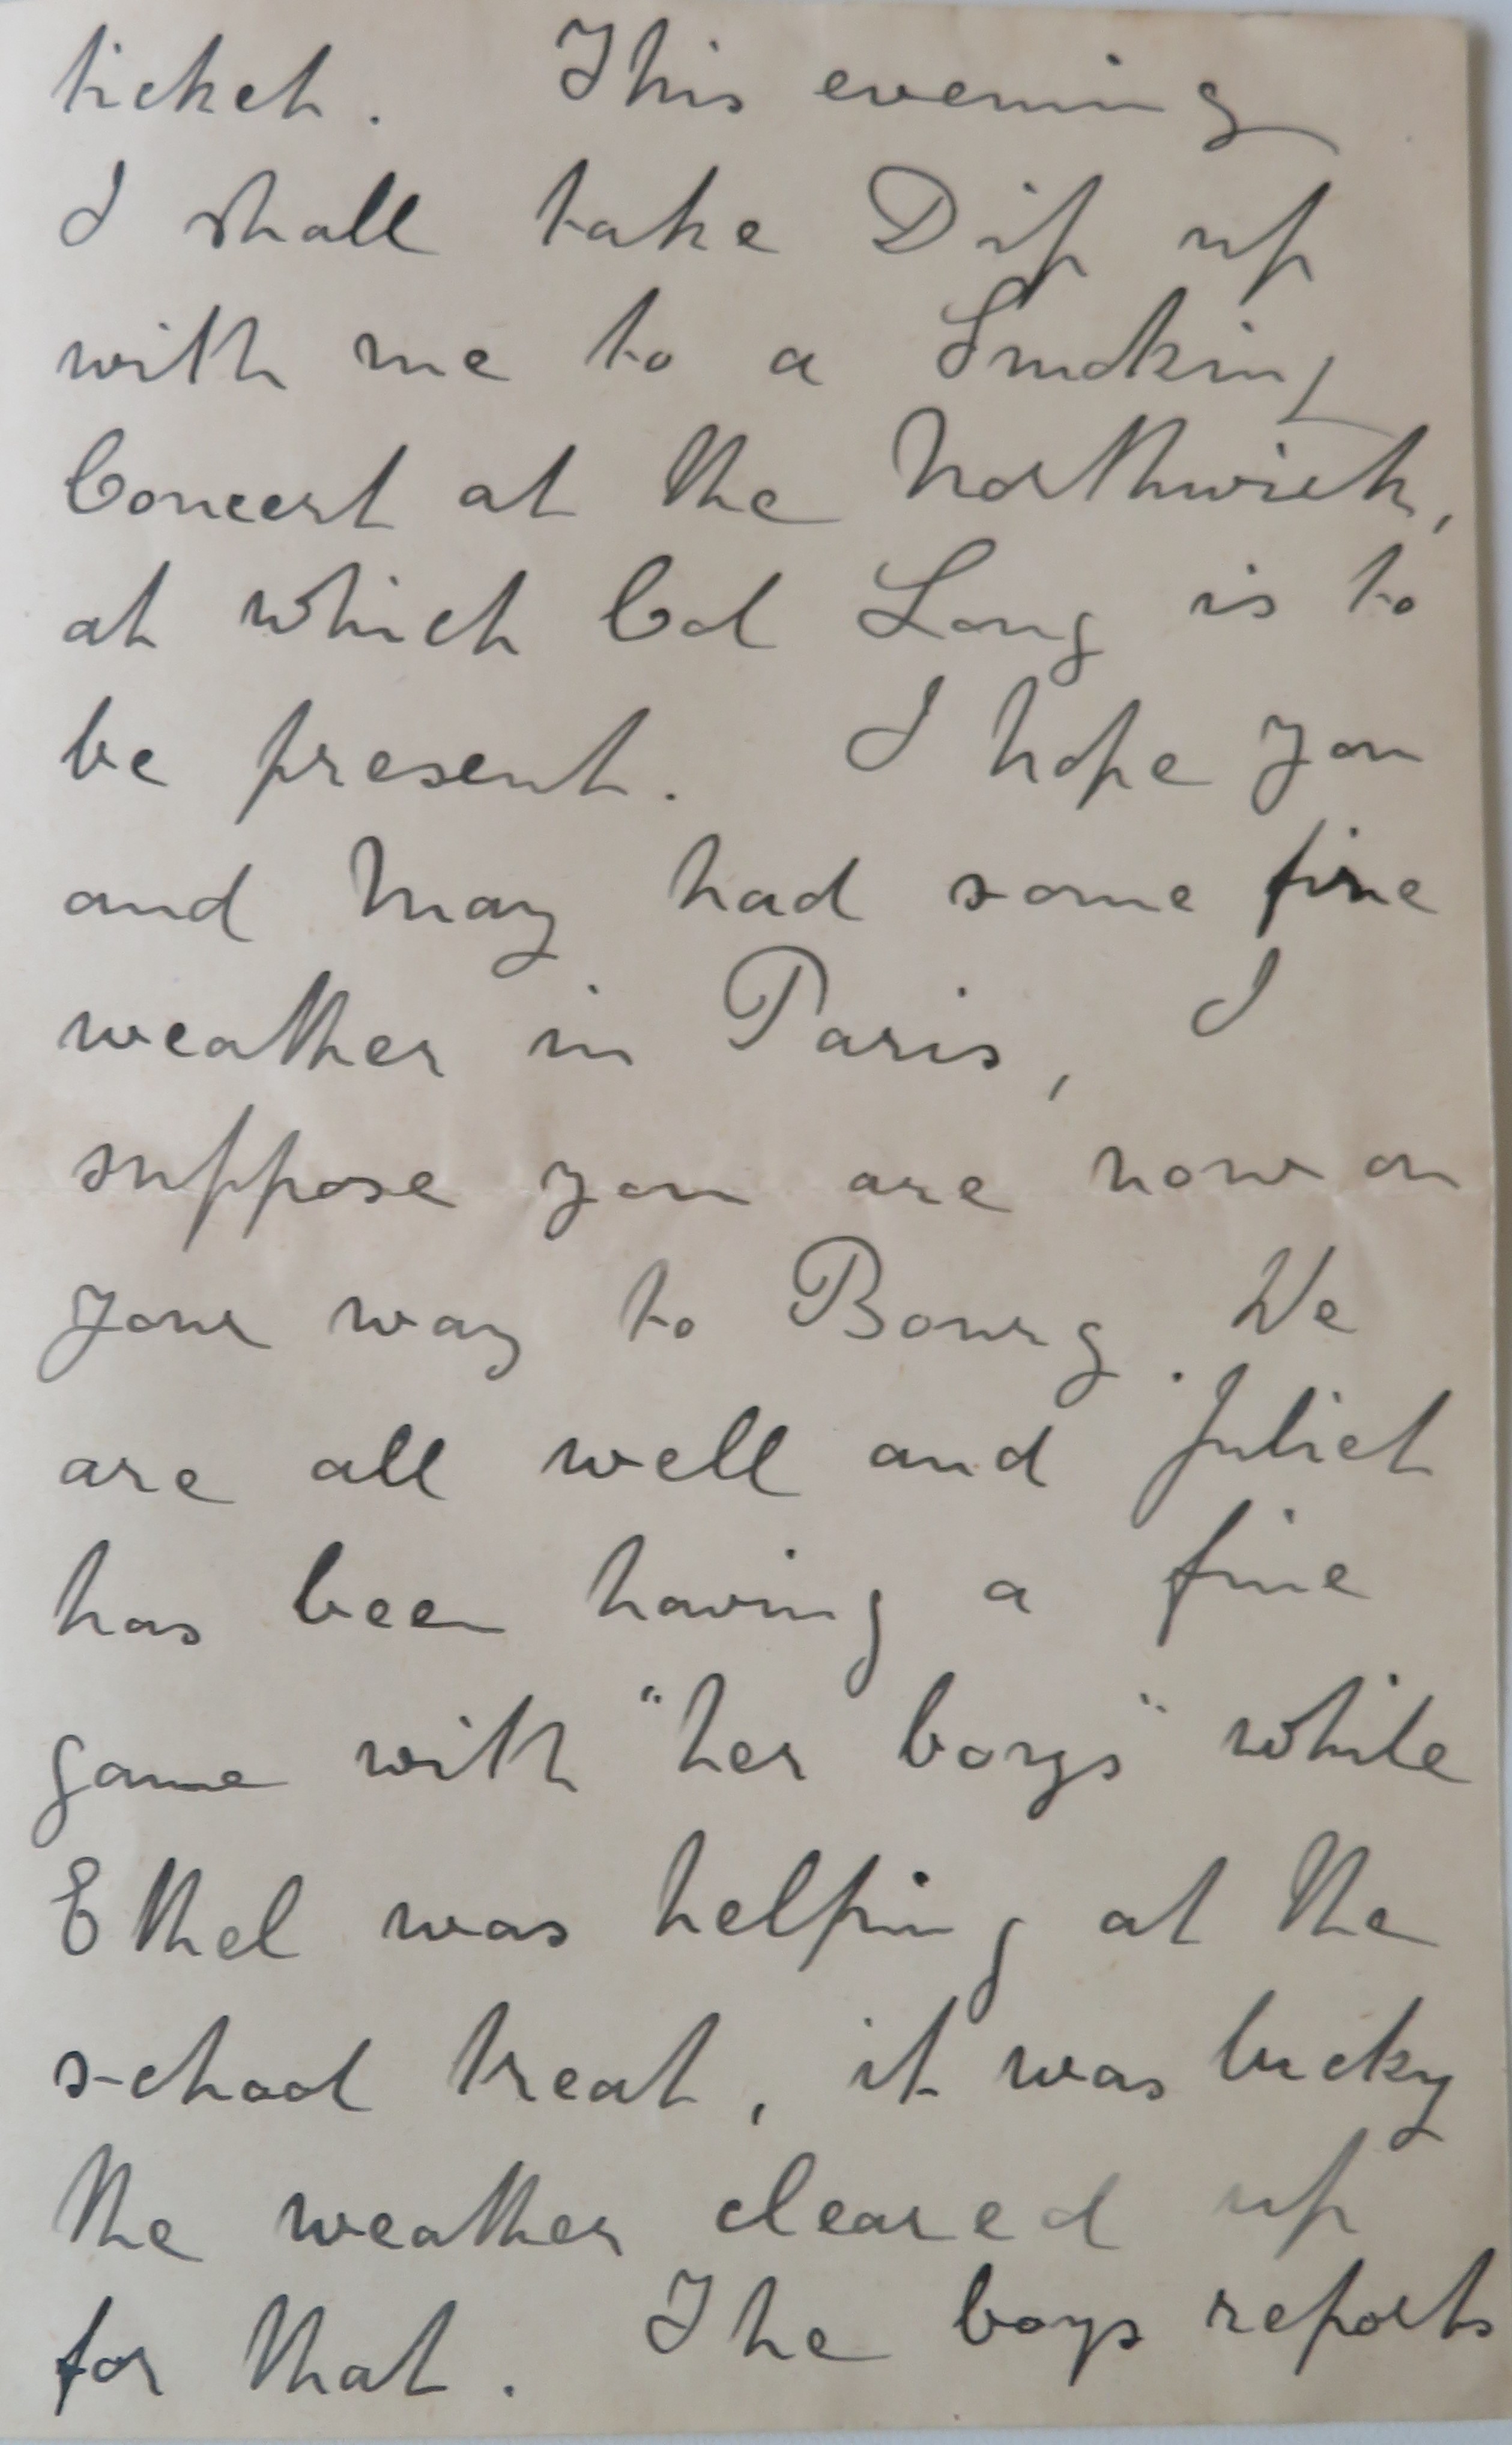 ticket. This evening
I shall take Dip up
with me to a Smoking
Concert at the Northwick,
at which Col Long is to
be present. I hope you
and May had some fine
weather in Paris, I
suppose you are now on
your way to Bourg. We
are all well and Juliet
has been having a fine
game with "her boys" while
Ethel was helping at the
school treat, it was lucky
the weather cleared up
for that. The boys reports